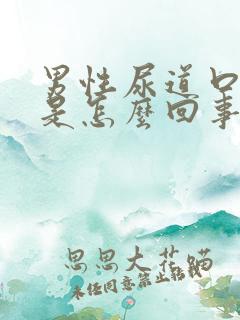 男性尿道口
是怎麼回事
思思大花猫
未经同意禁止转载